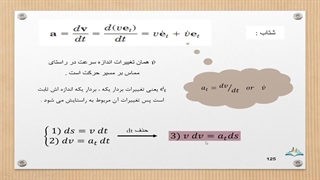 شتاب :
a = dv/dt = d(ve_t)/dt = v ė_t + v̇ e_t
v̇ همان تغییرات اندازه سرعت در راستای
مماس بر مسیر حرکت است .
a_t = dv/dt or v̇
ė_t یعنی تغییرات بردار یکه ، بردار یکه اندازه اش ثابت
است پس تغییرات آن مربوط به راستایش می شود .
{ 1) ds = v dt
2) dv = a_t dt
حذف dt
3) v dv = a_t ds
125